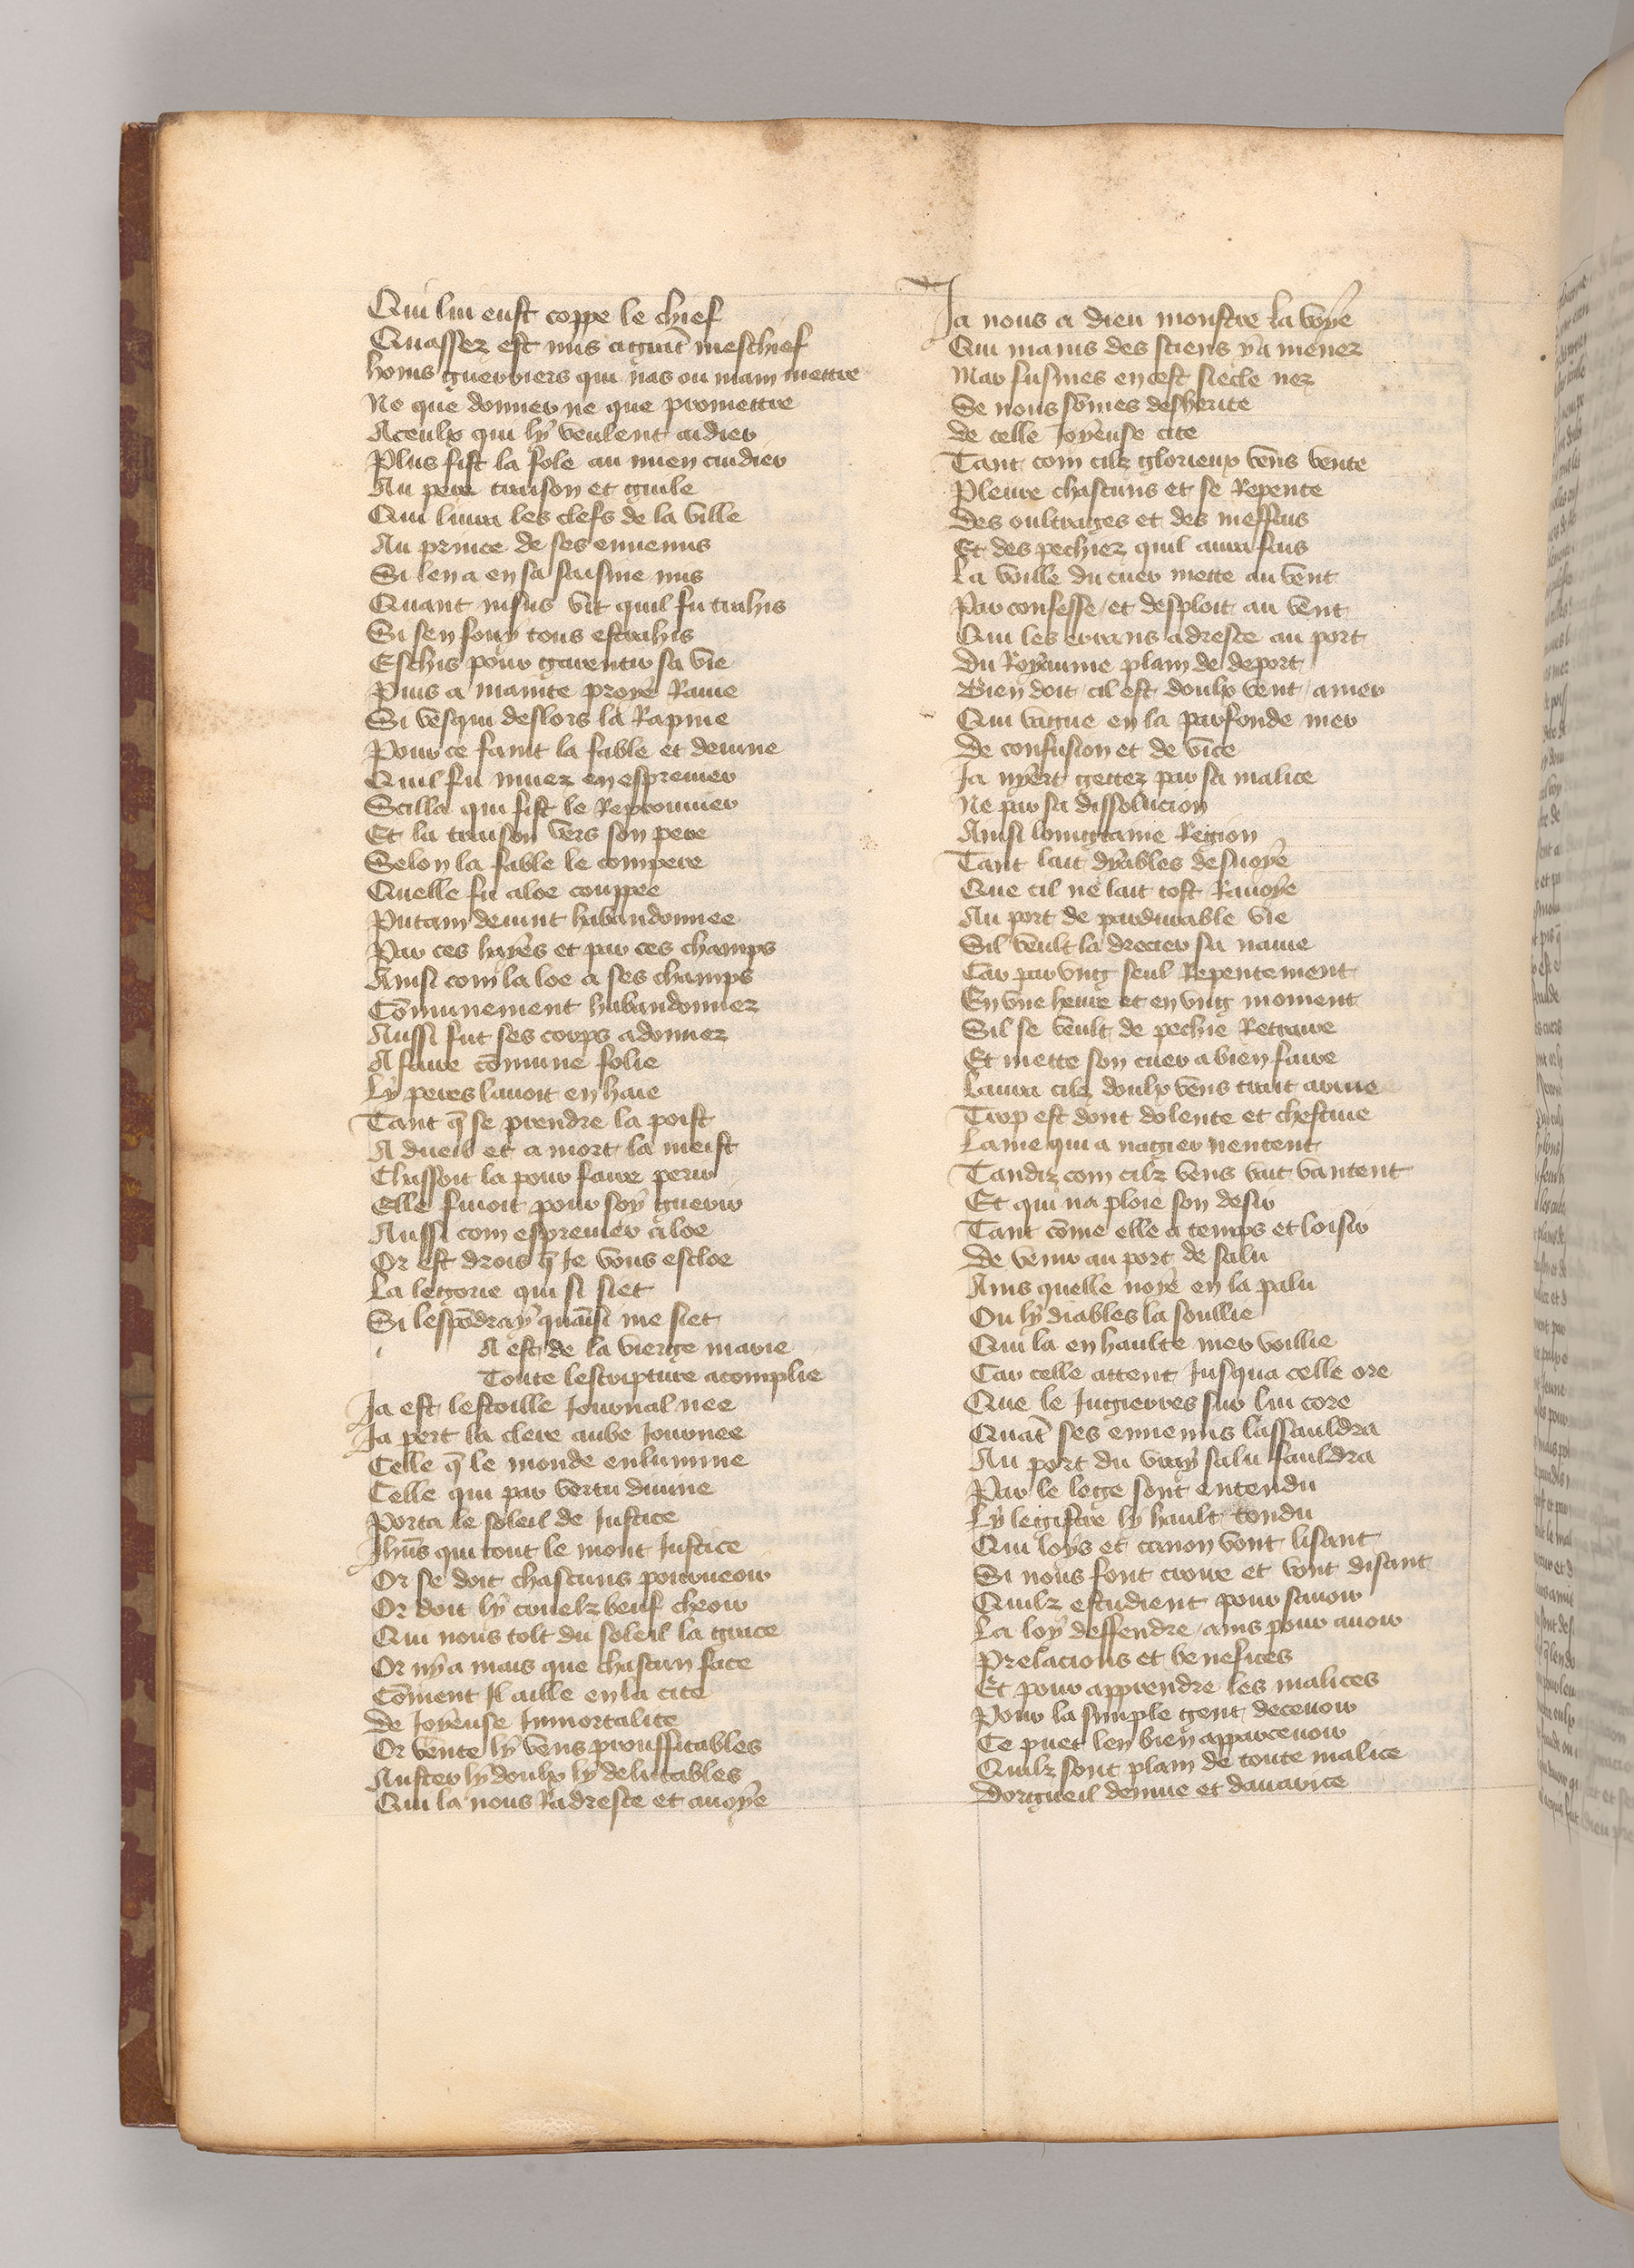 Qui lui eust coppe le chief
Quassez est mis a grant meschief
homs guerriers qui nas ou main mettre
Ne que donner ne que promettre
Aceulx qui ly veulent aidier
Plus fist la fole au mien cuidier
Au pere traison et guile
Qui liura les clefs de la ville
Au prince de ses ennemis
Si len a en sa saisine mis
Quant nisus vit quil fu trahis
Si sen fouy tous esbahis
Eschis pour garentir sa vie
Puis a mainte proye Rauie
Si vesqui deslors la Rapine
Pour ce faint la fable et deuine
Quil fu muez en espreuier
Scilla qui fist le Reprouuier
Et la traison vers son pere
Selon la fable le compere
Quelle fu aloe couppee
Putain deuint habandonnee
Par ces hayes et par ces champs
Ainsi com la loe a ses champs
Cōmunement habandonnez
Aussi fut ses corps adonnez
A faire cōmune folie
Ly peres lauoit en haie
Tant q̄ se prendre la poist
A dueil et a mort la meist
Chassoit la pour faire perir
Elle fuioit pour soy guerir
Aussi com espreuier aloe
Or est drois q̄ Je vousescloe
La legorie qui si siet
Si lespōdray quāsi me siet
A est de la vierge marie
Toute lescripture acomplie
Ja est lestoille Journal nee
Ja pert la clere aube Journee
Celle q̄ le monde enlumine
Celle qui par vertu diuine
Porta le soleil de Justice
Jhūs qui tout le mont Justice
Or se doit chascuns pourueoir
Or doit ly cruelz veuf cheoir
Qui nous tolt du soleil la grace
Or ny a mais que chascun face
Cōment Il aille en la cite
De Joyeuse Jnmortalite
Or vente ly vens prouffitables
Auster ly doulx ly delitables
Qui la nous Radresce et auoye
Ja nous a dieu monstre la voye
Qui mains des sciens y a menez
Mar fusmes en cest siecle nez
Se nous sōmes desherite
De celle Joyeuse cite
Tant com cilz glorieux vens vente
Pleure chascuns et se Repente
Des oultrages et des meffais
Et des pechiez quil aura fais
La voille du cuer mette au vent
Par confesse / et desploit au vent
Qui les errans adresce au port
Du Royaume plain de deport
Bien doit cil est doulx vent / amer
Qui vague en la parfonde mer
De confusion et de vice
Ja nyert gettez par sa malice
Ne par sa dissolucion
Ainsi longtaine Region
Tant lait dyables desuoye
Que cil ne lait tost Rauoye
Au port de pardurable vie
Sil veult la drecier sa nauie
Car par vng seul Repentement
En vne heure et en vng moment
Sil se veult de pechie Retraire
Et mette son cuer a bien faire
Laura cilz doulx vens trait ariue
Trop est dont dolente et chestiue
Lame qui a nagier nentent
Tandiz com cilz vens vait vantent
Et qui na ploie son desir
Tant cōme elle a temps et loisir
De venir au port de salu
Ains quelle noye en la palu
Ou ly diables la soullie
Qui la en haulte mer voillie
Car celle attent Jusqua celle ore
Que le Jugierres sur lui core
Quāt ses ennemis lassauldra
Au port du vray salu fauldra
Par le loge sont entendu
Ly legistre ly hault tondu
Qui loys et canon vont lisant
Si nous font croire et vont disant
Quilz estudient pour sauoir
La loy deffendre / ains pour auoir
Prelacions et benefices
Et pour apprendre les malices
Pour la simple gent deceuoir
Ce puet len bien apparceuoir
Quilz sont plain de toute malice
Dorgueil denuie et dauarice